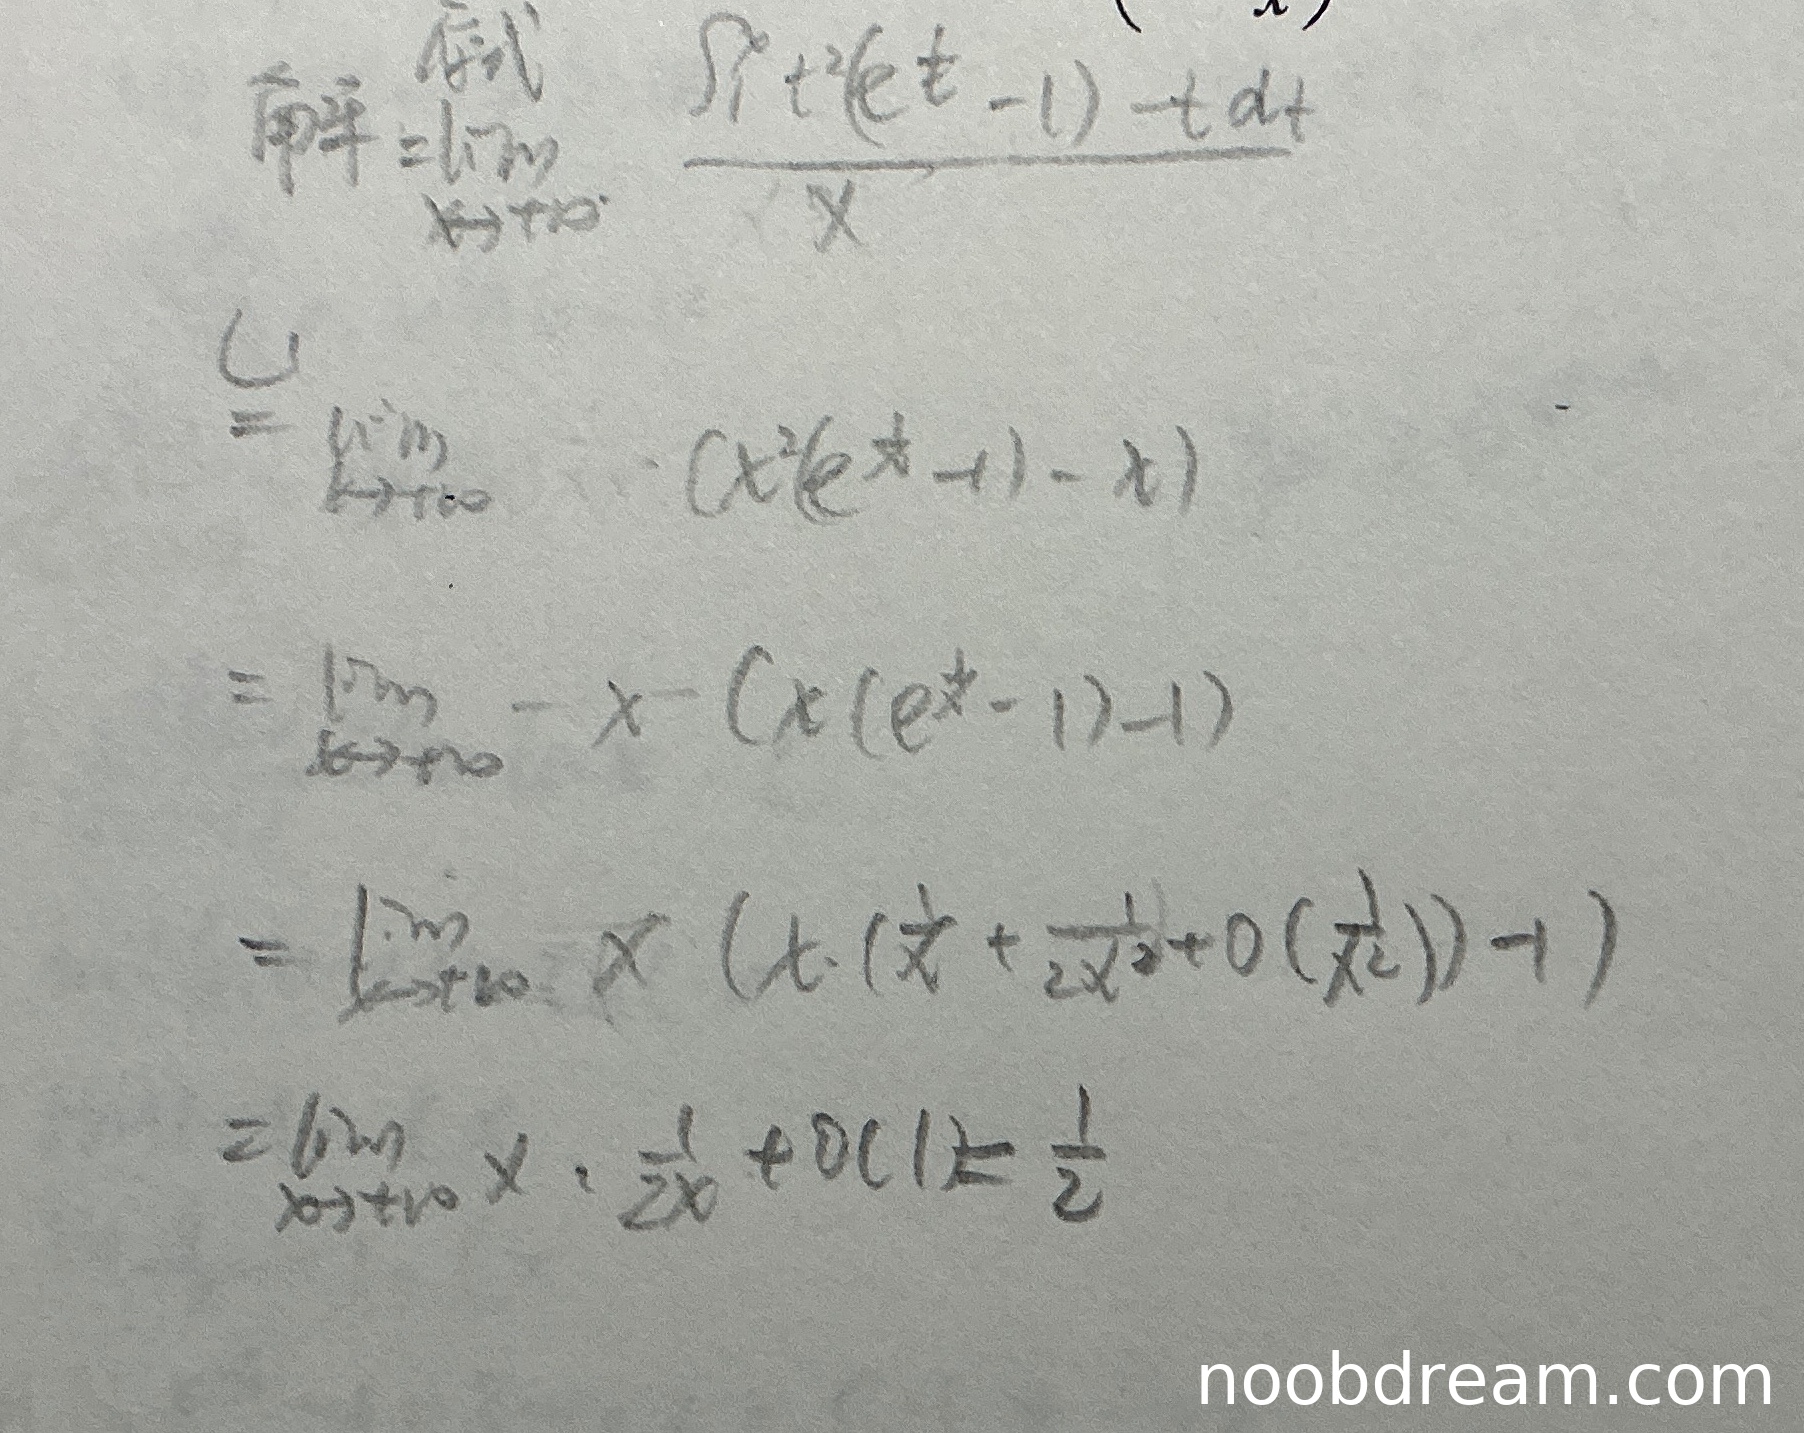 x)
原式
解 = lim x→+∞ ∫₁ˣ t²(e^(1/t) -1) -t dt / x
L
= lim x→+∞ (x²(e^(1/x) -1) - x)
= lim x→+∞ - x - (x(e^(1/x) - 1) -1)
= lim x→+∞ x (x·(1/x + 1/2x² + o(1/x²)) -1)
= lim x→+∞ x · 1/2x + o(1) = 1/2
noobdream.com